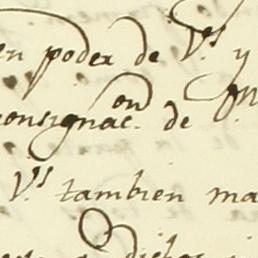 en poder de V.s y
consignac.on de
V.s tambien ma
dichos